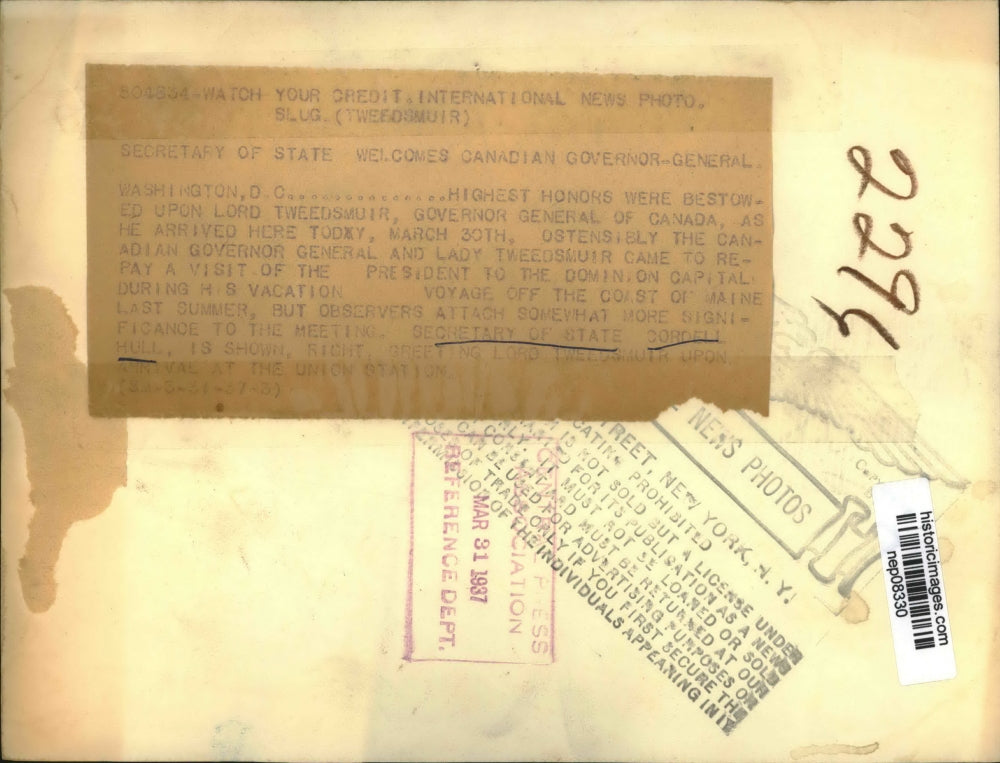 504834-WATCH YOUR CREDIT. INTERNATIONAL NEWS PHOTO.
SLUG. (TWEEDSMUIR)
SECRETARY OF STATE WELCOMES CANADIAN GOVERNOR-GENERAL.
WASHINGTON, D.C...............HIGHEST HONORS WERE BESTOW-
ED UPON LORD TWEEDSMUIR, GOVERNOR GENERAL OF CANADA, AS
HE ARRIVED HERE TODXY, MARCH 30TH. OSTENSIBLY THE CAN-
ADIAN GOVERNOR GENERAL AND LADY TWEEDSMUIR CAME TO RE-
PAY A VISIT OF THE PRESIDENT TO THE DOMINION CAPITAL
DURING HIS VACATION VOYAGE OFF THE COAST OF MAINE
LAST SUMMER, BUT OBSERVERS ATTACH SOMEWHAT MORE SIGNI-
FICANCE TO THE MEETING. SECRETARY OF STATE CORDELL
HULL, IS SHOWN, RIGHT, GREETING LORD TWEEDSMUIR UPON
ARRIVAL AT THE UNION STATION.
2294
NEWS PHOTOS
STREET, NEW YORK, N.Y.
PROHIBITED
IS NOT SOLD BUT A LICENSE UNDER
FOR ITS PUBLICATION AS A NEWS
IT MUST NOT BE LOANED OR SOLD
AND MUST BE RETURNED AT OUR
CAN BE USED FOR ADVERTISING PURPOSES OR
OF TRADE ONLY IF YOU FIRST SECURE THE
OF THE INDIVIDUALS APPEARING IN IT
PRESS
ASSOCIATION
MAR 31 1937
REFERENCE DEPT.
historicimages.com
nep08330